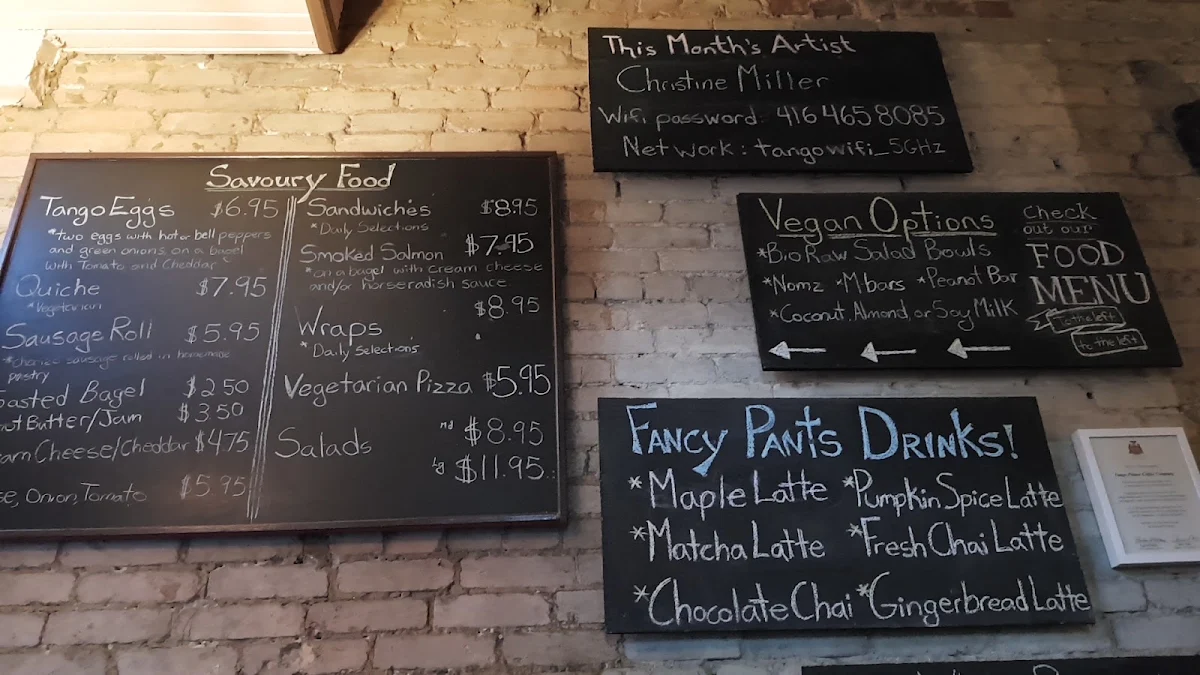 Savoury Food
Tango Eggs $6.95
*two eggs with hot or bell peppers
and green onions on a bagel
with Tomato and Cheddar
Quiche $7.95
*Vegetarian
Sausage Roll $5.95
*Chorizo sausage rolled in homemade
pastry
oasted Bagel $2.50
nut Butter/Jam $3.50
eam Cheese/Cheddar $4.75
se, Onion, Tomato $5.95
Sandwiches $8.95
*Daily Selections
Smoked Salmon $7.95
*on a bagel with cream cheese
and/or horseradish sauce
$8.95
Wraps
*Daily selections
Vegetarian Pizza $5.95
md $8.95
Salads
lg $11.95
This Month's Artist
Christine Miller
Wifi password: 416 465 8085
Network: tangowifi_5GHz
Vegan Options
*Bio Raw Salad Bowls
*Nomz *M-bars *Peanot Bar
*Coconut, Almond, or Soy Milk
Check
out our
FOOD
MENU
to the left
to the left
Fancy Pants Drinks!
*Maple Latte *Pumpkin Spice Latte
*Matcha Latte *Fresh Chai Latte
*Chocolate Chai *Gingerbread Latte